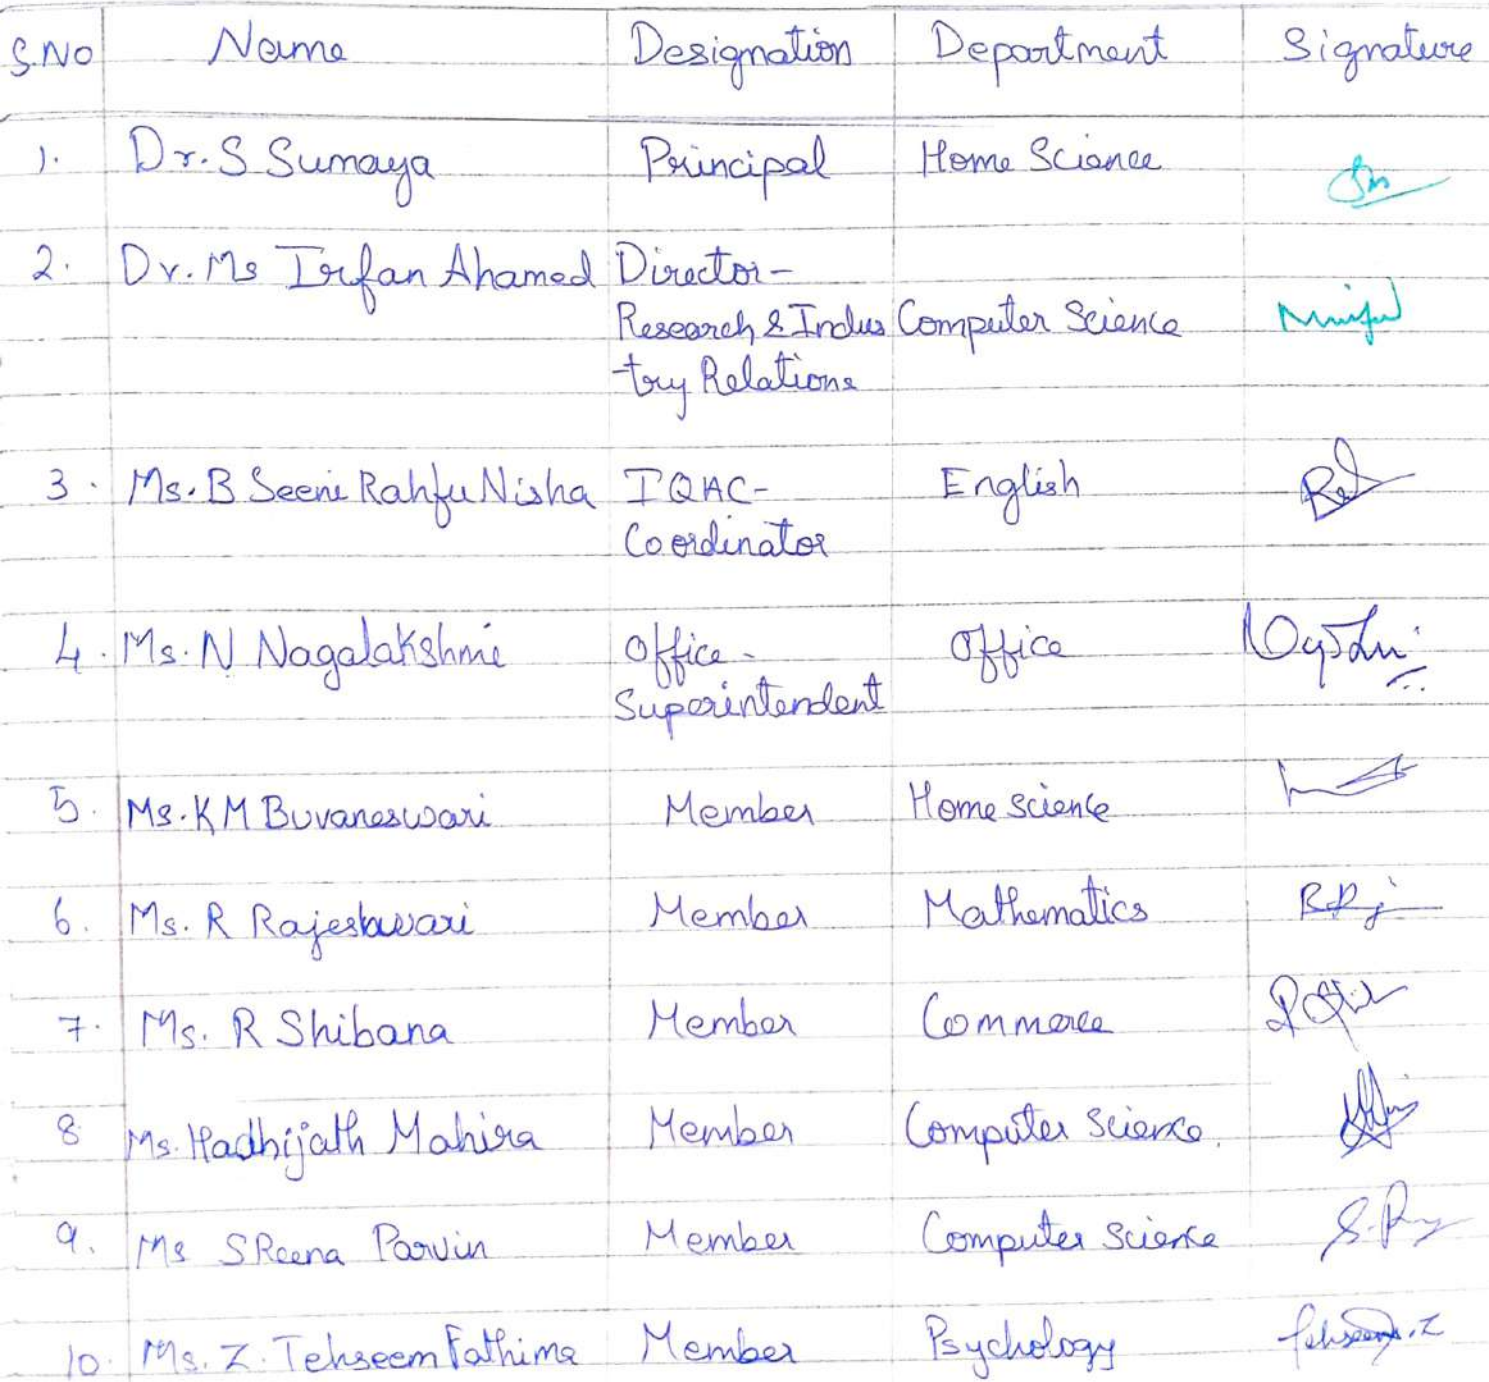 S.No Name Designation Department Signature
1. Dr. S Sumaya Principal Home Science
2. Dr. Ms Irfan Ahamed Director-
Research & Indus Computer Science
try Relations
3. Ms. B Seeni Rahfu Nisha IQAC- English
Coordinator
4. Ms. N Nagalakshmi Office - Office
Superintendent
5. Ms. K M Buvaneswari Member Home Science
6. Ms. R Rajeshwari Member Mathematics
7. Ms. R Shibana Member Commerce
8 Ms. Hadhijath Mahira Member Computer Science.
9. Ms S Reena Parvin Member Computer Science
10. Ms. Z. Tehseem Fathima Member Psychology